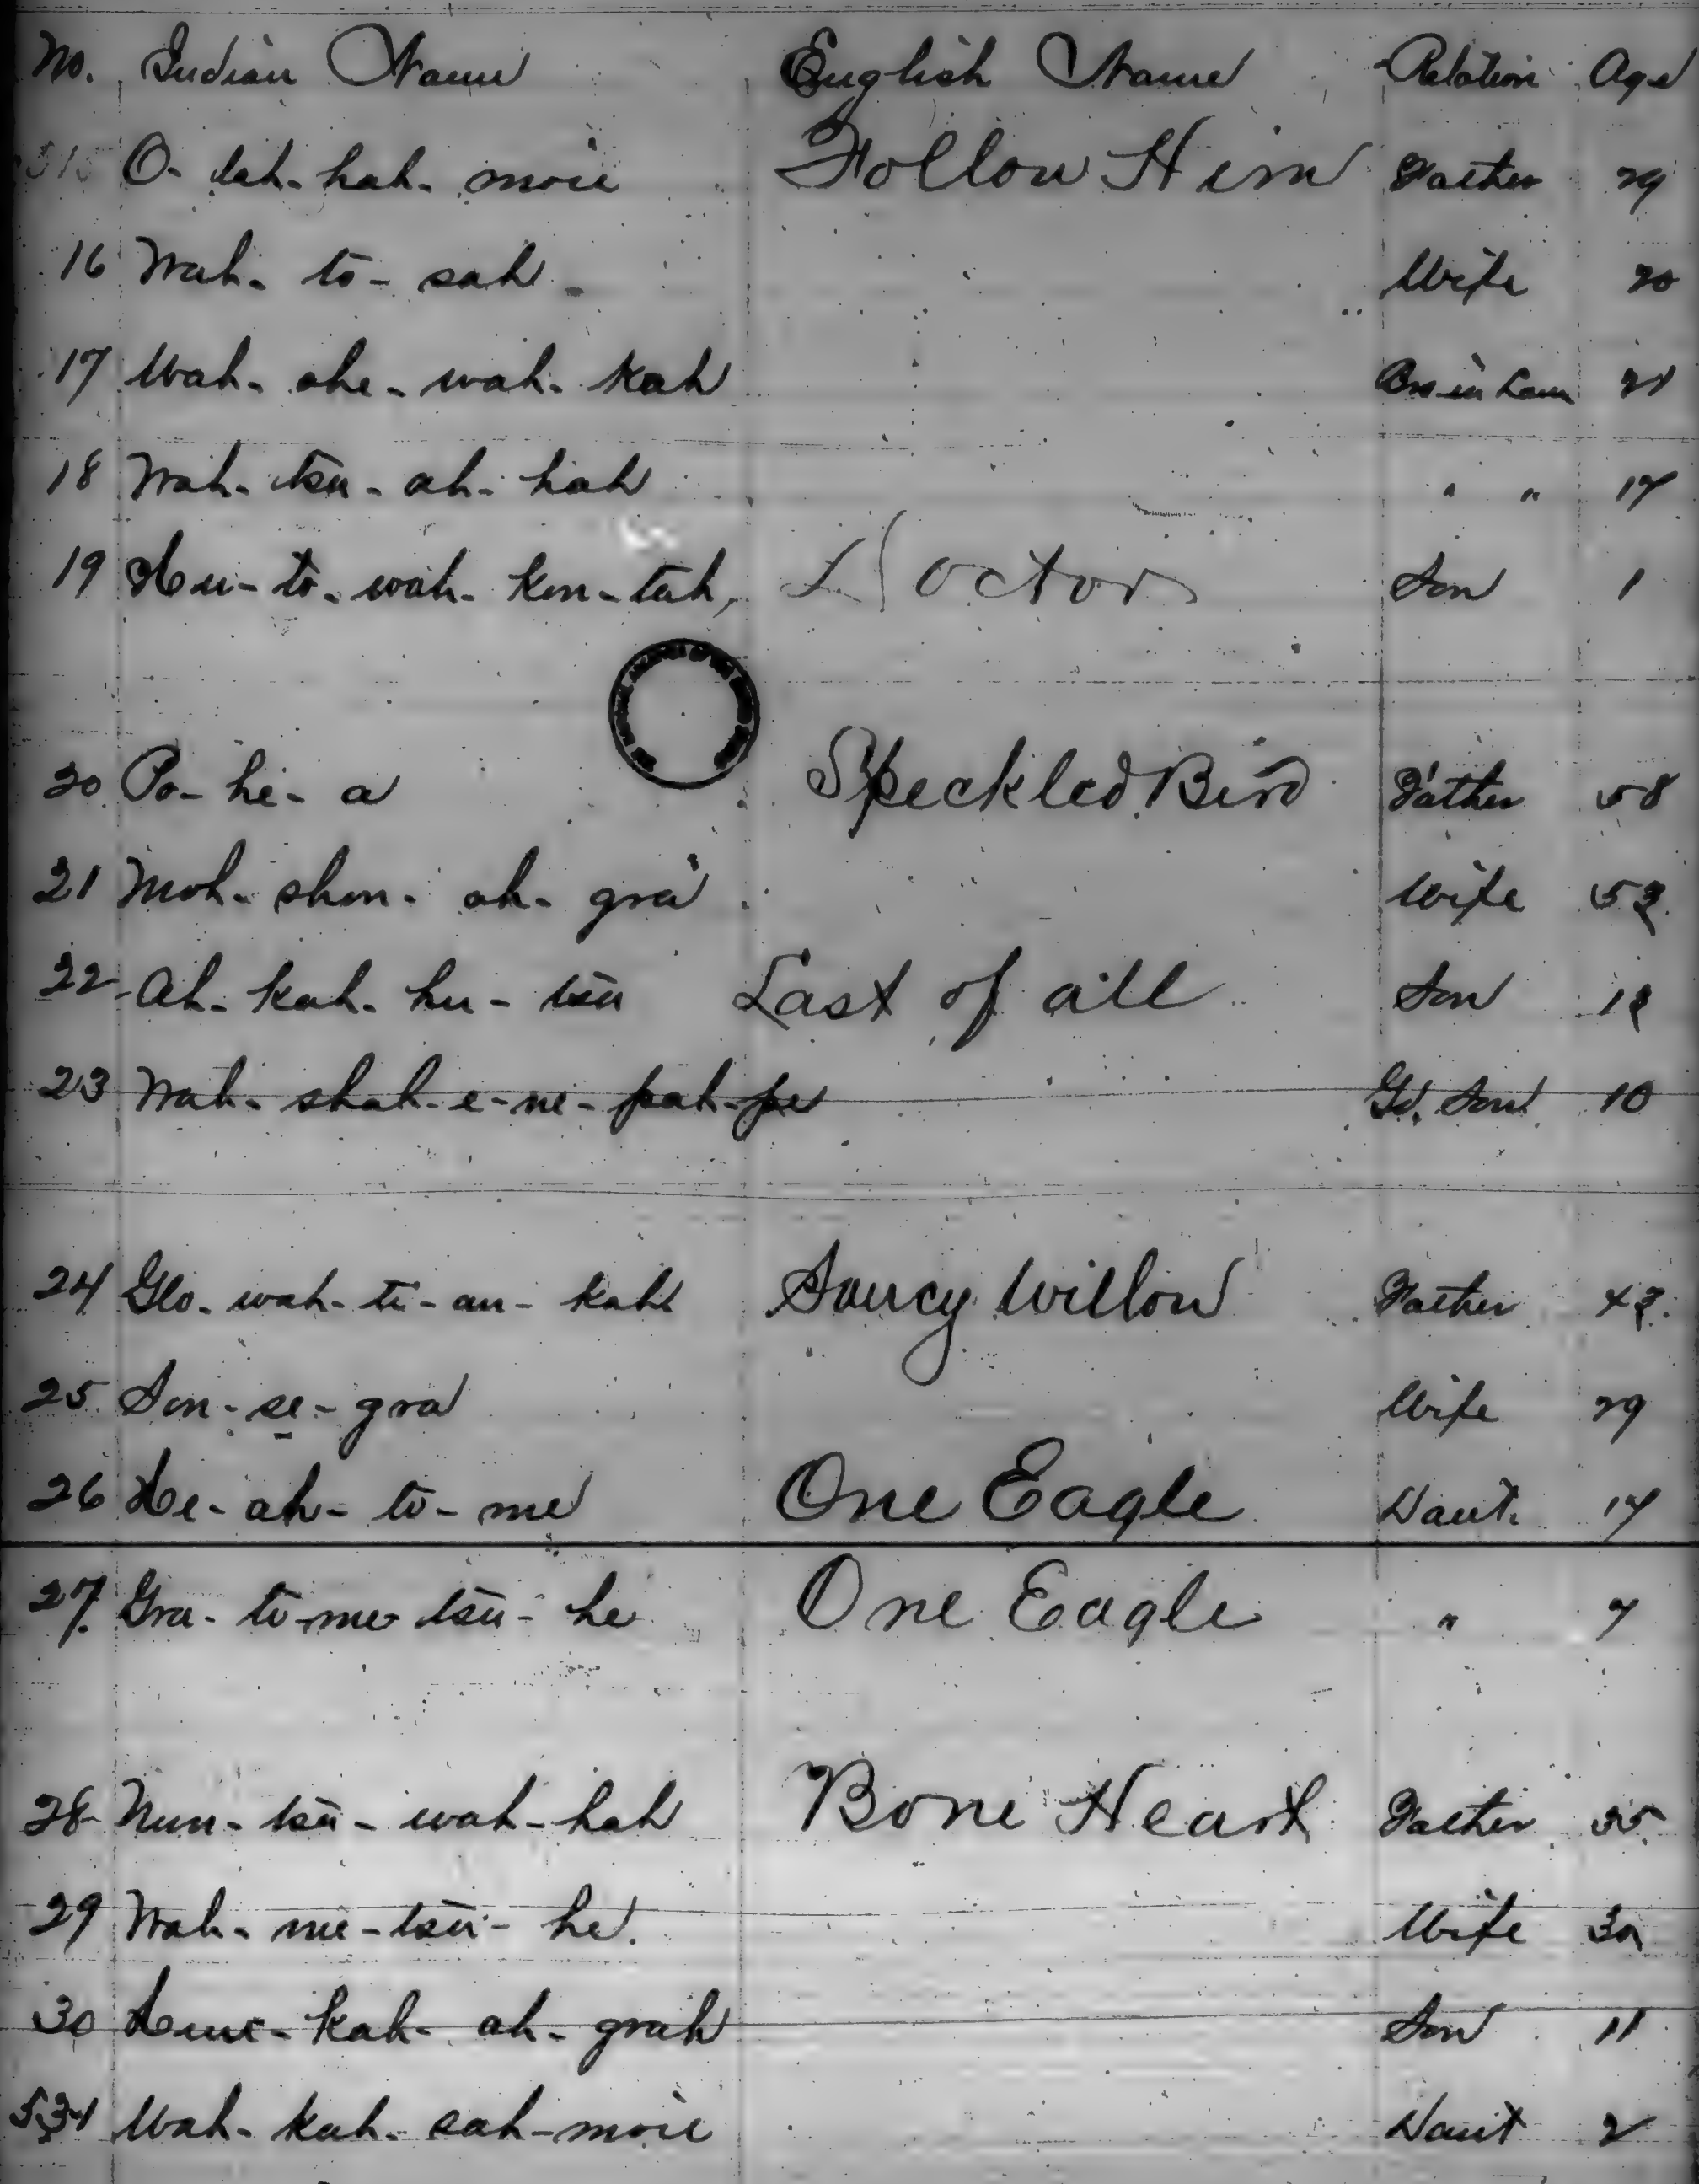 No. Indian Name English Name Relation Age
515 O- lah- hah- moie Follow Him Father 29
16 Wah- to- sah Wife 20
17 Wah- she- wah- kah Bro in Law 21
18 Wah- tsa- ah- hah " " 17
19 Hu- to- wah- kon- tah, Doctor Son 1
20 Po- he- a Speckled Bird Father 58
21 Moh- shon- ah- gra Wife 52
22 Ah- kah- hu- tsa Last of all Son 12
23 Wah- shah- e- ne- pah- pe Gd. Son 10
24 Glo- wah- ti- an- kah Saucy Willow Father 42
25 Son- se- gra Wife 29
26 He- ah- to- me One Eagle Daut. 17
27 Gra- to- me tsa- he One Eagle " 7
28 Nun- tsa- wah- hah Bone Heart Father 35
29 Wah- me- tsa- he. Wife 32
30 kah- ah- grah Son 11
531 Wah- kah- sah- moie Daut 2